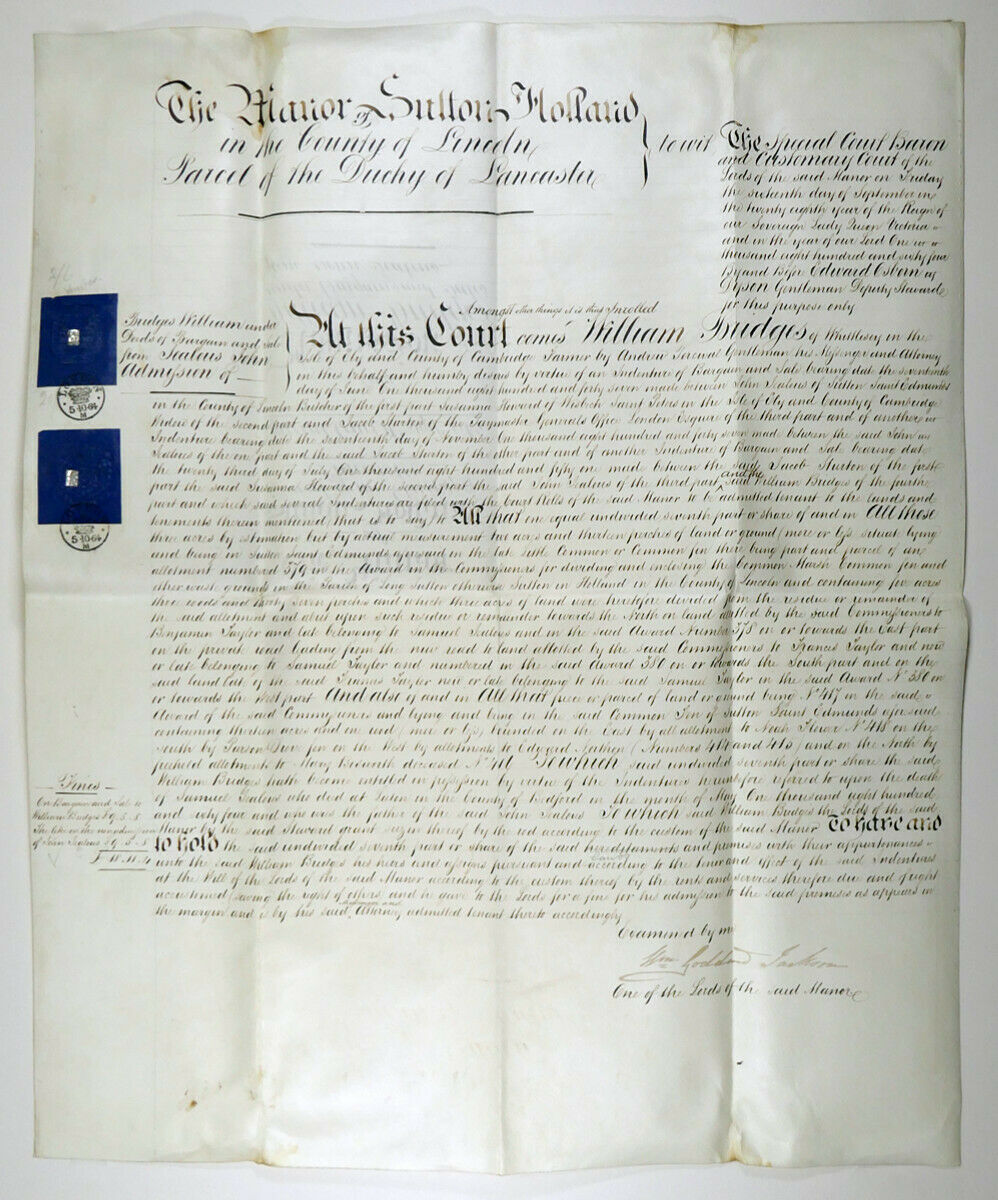 The Manor of Sutton Holland
in the County of Lincoln
Parcel of the Duchy of Lancaster
to wit
The Special Court Baron
and Customary Court of the
Lords of the said Manor on Friday
the sixteenth day of September in
the twenty eighth year of the Reign of
our Sovereign Lady Queen Victoria
and in the year of our Lord One
thousand eight hundred and sixty four
By and Before Edward Osborn
Dyson Gentleman Deputy Steward
for this purpose only
5·10·64
M
5·10·64
M
Bridges William under
Deeds of Bargain and Sale
from Sealous John
Admission of
Amongst other things it is thus Inrolled
At this Court comes William Bridges of Whittlesey in the
Isle of Ely and County of Cambridge Farmer by Andrew Gentleman his Messenger and Attorney
in this behalf and humbly desires by virtue of an Indenture of Bargain and Sale bearing date the seventeenth
day of June One thousand eight hundred and forty seven made between John Sealous of Sutton Saint Edmunds
in the County of Lincoln Butcher of the first part Susanna Howard of Wisbech Saint Peters in the Isle of Ely and County of Cambridge
Widow of the second part and Jacob Hurton of the Paymaster Generals Office London Esquire of the third part and of another
Indenture bearing date the seventeenth day of November One thousand eight hundred and forty seven made between the said John
Sealous of the one part and the said Jacob Hurton of the other part and of another Indenture of Bargain and Sale bearing date
the twenty third day of July One thousand eight hundred and fifty one made between the said Jacob Hurton of the first
part the said Susanna Howard of the second part the said John Sealous of the third part and the said William Bridges of the fourth
part and which said several Indentures are filed with the Court Rolls of the said Manor to be admitted tenant to the lands and
tenements therein mentioned that is to say to All that one equal undivided seventh part or share of and in All those
three acres by estimation but by actual measurement two acres and thirteen perches of land or ground (more or less) situate lying
and being in Sutton Saint Edmunds aforesaid in the late Common or Common fen there being part and parcel of an
allotment numbered 379 in the Award in the Commissioners for dividing and enclosing the Common Marsh Common fen and
other waste grounds in the Parish of Long Sutton otherwise Sutton in Holland in the County of Lincoln and containing five acres
three roods and thirty seven perches and which three acres of land were heretofore divided from the residue or remainder of
the said allotment and abut upon such residue or remainder towards the North on land allotted by the said Commissioners to
Benjamin Taylor and late belonging to Samuel Sealous and in the said Award Number 378 on or towards the East part
on the private road leading from the new road to land allotted by the said Commissioners to Francis Taylor and now
or late belonging to Samuel Taylor and numbered in the said Award 380 on or towards the South part and on the
said land late of the said Francis Taylor now or late belonging to the said Samuel Taylor in the said Award No 380 on
or towards the West part And also of and in All that piece or parcel of land or ground being No 417 in the said
Award of the said Commissioners and lying and being in the said Common Fen of Sutton Saint Edmunds aforesaid
containing thirteen acres and one rood (more or less) bounded on the East by allotment to Noah No 418 on the
South by fen on the West by allotments to Edward (Numbers 414 and 415) and on the North by
freehold allotment to Mary Bosworth deceased No To which said undivided seventh part or share the said
William Bridges hath become entitled in possession by virtue of the Indentures hereinbefore referred to upon the death
of Samuel Sealous who died at in the County of Bedford in the month of May One thousand eight hundred
and sixty four and who was the father of the said John Sealous To which said William Bridges the Lords of the said
Manor by the said Steward grant seizin thereof by the rod according to the custom of the said Manor To have and
to hold the said undivided seventh part or share of the said hereditaments and premises with their appurtenances
unto the said William Bridges his heirs and assigns pursuant and according to the tenor and effect of the said Indentures
at the Will of the Lords of the said Manor according to the custom thereof by the rents and services therefore due and of right
accustomed (saving the right of others) and he gave to the Lords for a fine for his admission to the said premises as appears in
the margin and is by his said Messenger and Attorney admitted tenant thereto accordingly
Fines
On Bargain and Sale to
William Bridges
The like on the
of John Sealous
Examined by me
Wm Goddard Jackson
One of the Lords of the said Manor